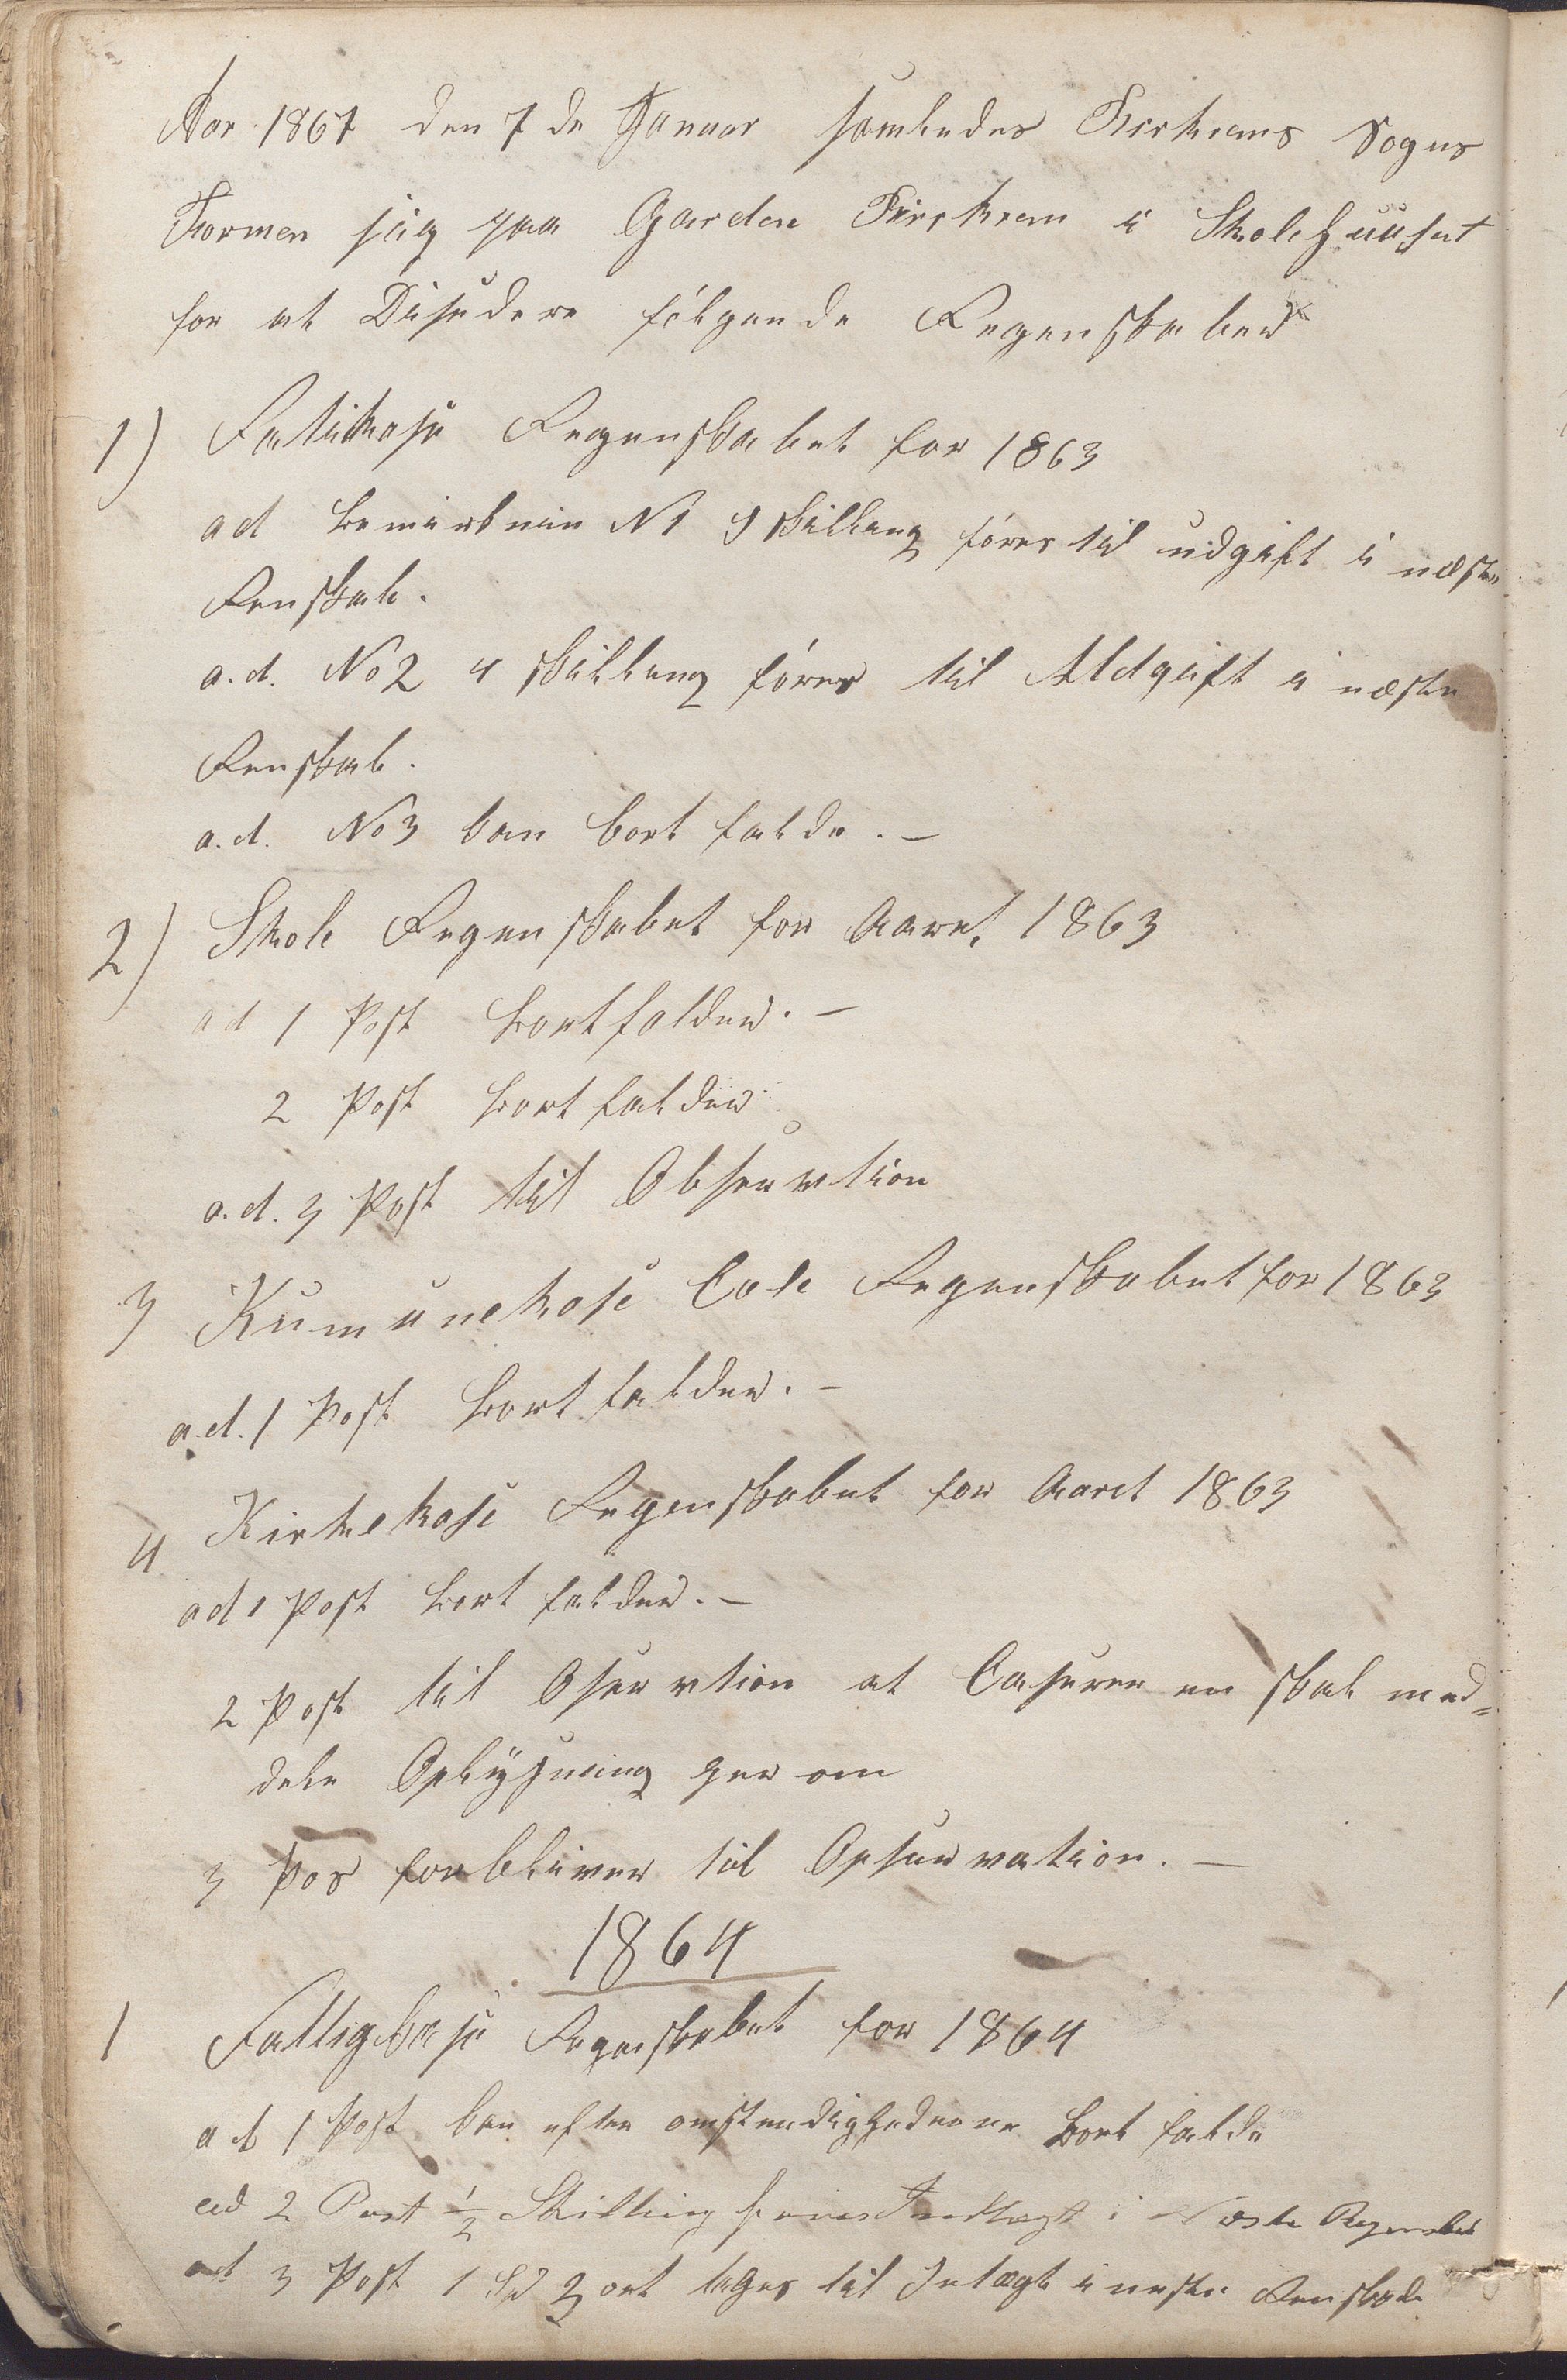 Aar 1867 den 7de Januar samledes Birkrems Sogns
Formen sig paa Garden Birkrem i Skolehuuset
for at Disedere fölgende Regenskaber
1) Fatikase Regenskabet for 1863
ad bemerknin N 1 9 skilleng förer til udgift i næste
Renskab.
a.d. No 2 4 skilleng förer til Udgift i næste
Renskab.
a.d. No 3 kan bort falde. —
2) Skole Regenskabet for Aaret 1863
ad 1 Post bortfalder. —
2 Post bort falder
a.d. 3 Post til Observation
3 Kumunekase Cole Regenskabet for 1863
a.d. 1 Post bort falder. —
4 Kirkekase Regenskabet for Aaret 1863
ad 1 Post bort falder. —
2 Post til Oservtion at Caseren en skal med=
dele Oplysning her om
3 Pos forbliver til Opservation. —
1864
1 Fattigkase Regenskabet for 1864
ad 1 Post kan efter omstendighederne bort falde
ad 2 Post ½ Skilling föres Indtægt i Næste Regnskab
ad 3 Post 1 Sp 2 ort tages til Intægt i neste Renskab